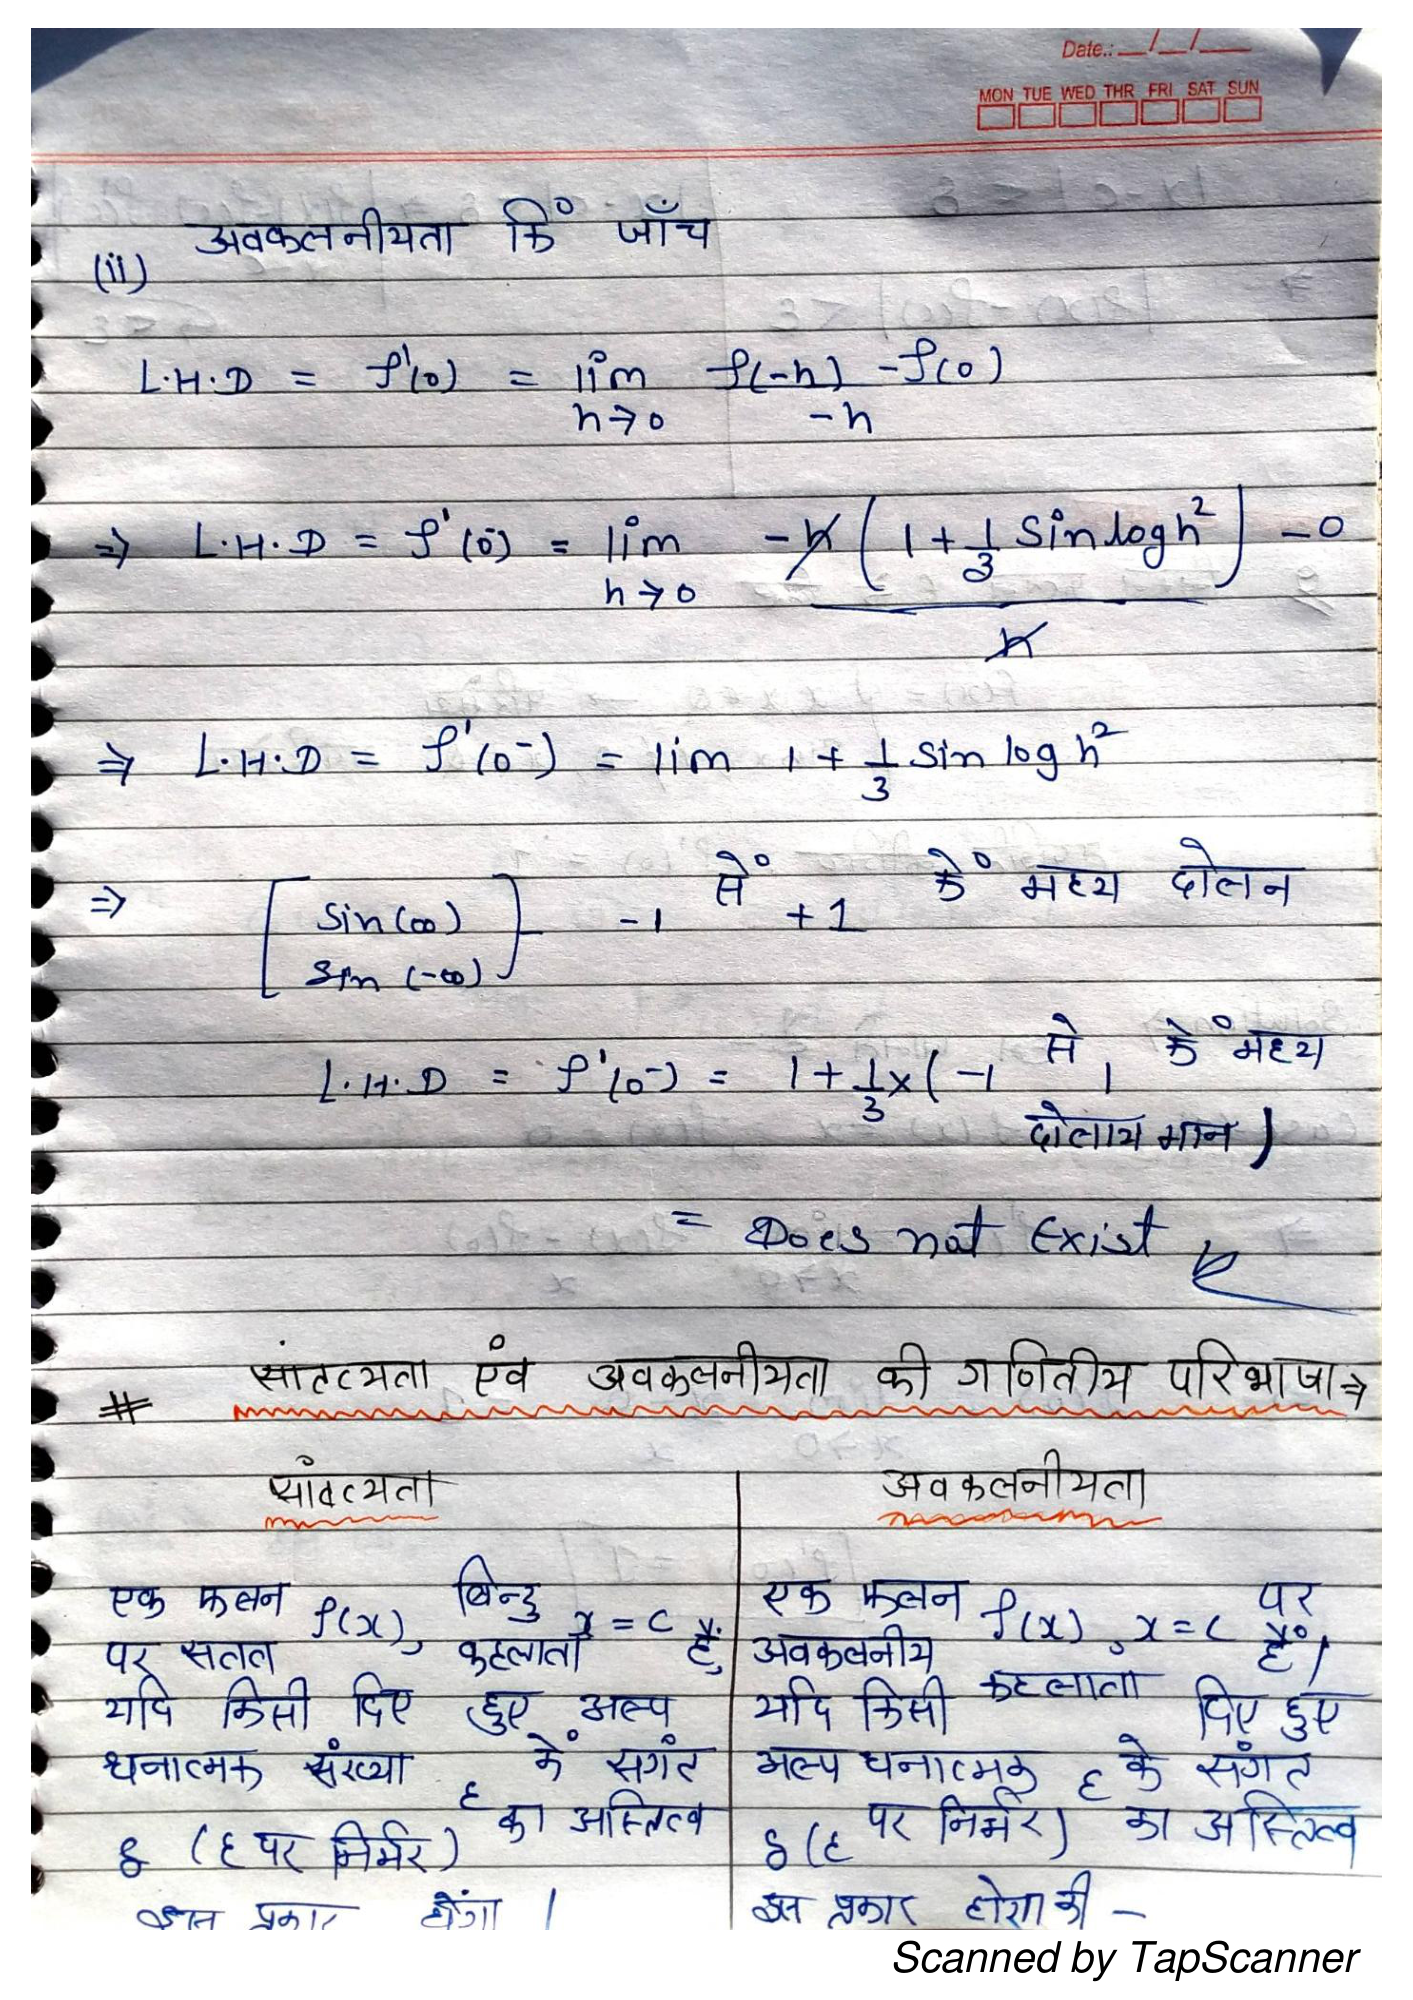 Date.: __/__/__
MON TUE WED THR FRI SAT SUN
(ii) अवकलनीयता कि॰ जाँच
L.H.D = f'(0) = lim h→0 f(-h) - f(0) / -h
⇒ L.H.D = f'(0⁻) = lim h→0 -h (1 + 1/3 Sin log h²) - 0 / h
⇒ L.H.D = f'(0⁻) = lim 1 + 1/3 sin log h²
⇒ [sin(∞) sin(-∞)] -1 से॰ +1 के॰ मध्य दोलन
L.H.D = f'(0⁻) = 1 + 1/3 × (-1 से 1 के॰ मध्य
दोलायमान)
= Does not Exist
# सांतत्यता एंव अवकलनीयता की गणितीय परिभाषा ⇒
सांतत्यता
एक फलन f(x), बिन्दु x = c
पर सतत कहलाता है,
यदि किसी दिए हुए अल्प
धनात्मक संख्या ε के॰ सगंत
δ (ε पर निर्भर) का अस्तित्व
इस प्रकार होंगा |
अवकलनीयता
एक फलन f(x), x = c पर
अवकलनीय कहलाता है |
यदि किसी दिए हुए
अल्प धनात्मक ε के संगत
δ (ε पर निर्भर) का अस्तित्व
इस प्रकार होगा की -
Scanned by TapScanner